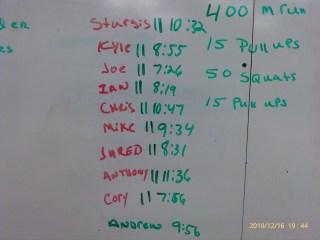 der
es
Sturgis || 10:32
Kyle || 8:55
Joe || 7:26
IAN || 8:19
CHRIS || 10:47
MIKE || 9:34
JARED || 8:31
ANTHONY || 11:36
Cory || 7:56
ANDREW 9:56
400 m run
15 Pull ups
50 Squats
15 Pull ups
2010/12/16 19:44